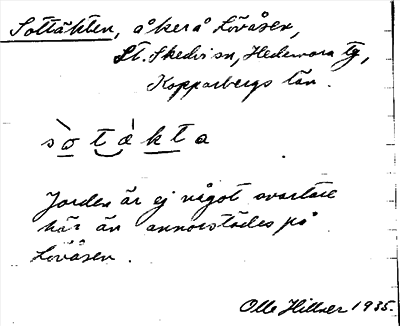 Sottäkten, åker å Lövåsen,
St. Skedvi sn, Hedemora tg,
Kopparbergs län.
sòtǽkta
Jorden är ej något svartare
här än annorstädes på
Lövåsen.
Olle Hillner 1935.